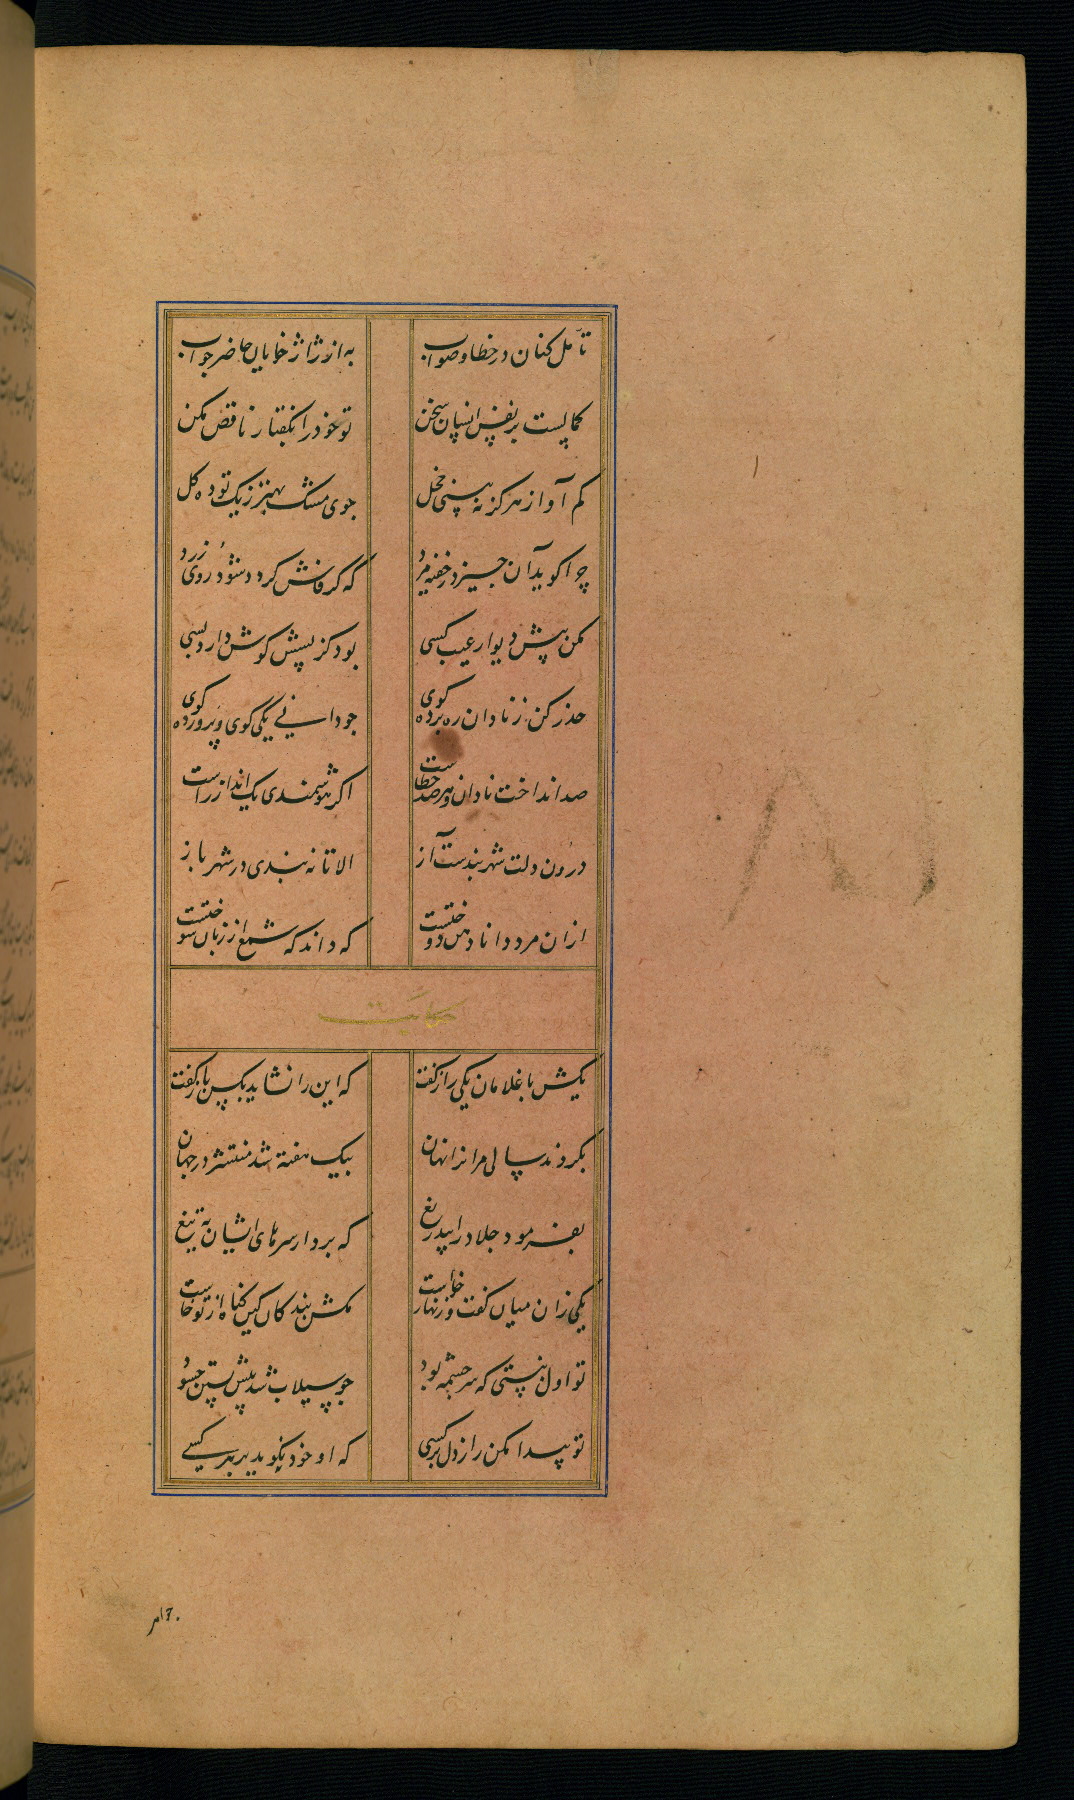 تأمل کنان در خطا و صواب
به از ژاژ خایان حاضر جواب
کمالیست بر نفس انسان سخن
تو خود را بکفتار ناقص مکن
کم آواز هرکز نه بینی خجل
جوی مشک بهتر ز یک توده کل
چرا کوید آن چیز در خفیه مرد
که کر فاش کردد شود روی زرد
مکن پیش دیوار عیب کسی
بود کز پسش کوش دارد بسی
حذر کن ز نادان ره برده کوی
جو دانا یکی کوی و پرورده کوی
صد انداخت نادان و هر صد خطاست
اکر هوشمندی یک انداز راست
درون دلت شهر بندست آز
الا تا نه بندی در شهر باز
ازان مرد دانا دهن دوختست
که داند که شمع از زبان سوختست
حکایت
یکیش با غلامان یکی راز کفت
که این را نشاید بکس باز کفت
بکردند سالی مر انرا نهان
بیک هفته شد منتشر در جهان
بفرمود جلاد را بیدریغ
که بردار سرهای ایشان به تیغ
یکی زان میان کفت و زنهار خواست
مکش بندکان کین کناه از تو خاست
تو اول نبستی که سرچشمه بود
جو سیلاب شد پیش بستن چسود
تو پیدا مکن راز دل بر کسی
که او خود نکوید بر هر کسی